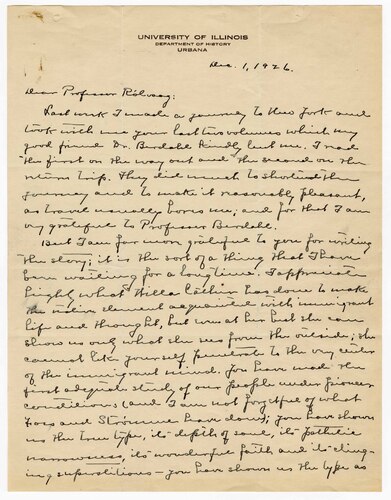 UNIVERSITY OF ILLINOIS
DEPARTMENT OF HISTORY
URBANA
Dec. 1, 1926.
Dear Professor Rölvaag:
Last week I made a journey to New York and
took with me your last two volumes which my
good friend Dr. Burdahl kindly lent me. I read
the first on the way out and the second on the
return trip. They did much to shorten the
journey and to make it reasonably pleasant,
as travel usually bores me; and for that I am
very grateful to Professor Burdahl.
But I am far more grateful to you for writing
the story; it is the sort of a thing that I have
been waiting for a long time. I appreciate
highly what Willa Cather has done to make
the native element acquainted with immigrant
life and thought, but even at her best she can
show us only what she sees from the outside; she
cannot like yourself penetrate to the very center
of the immigrant mind. You have made the
first adequate study of our people under pioneer
conditions (and I am not forgetful of what
Foss and Strömme have done); you have shown
us the true type, its depth of soul, its pathetic
narrowness, its wonderful faith and its cling-
ing superstitions – you have shown us the type as